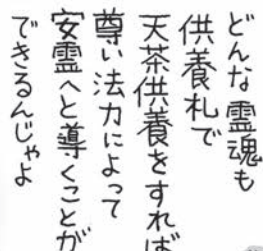 どんな霊魂も
供養札で
天茶供養をすれば
尊い法力によって
安霊へと導くことが
できるんじゃよ